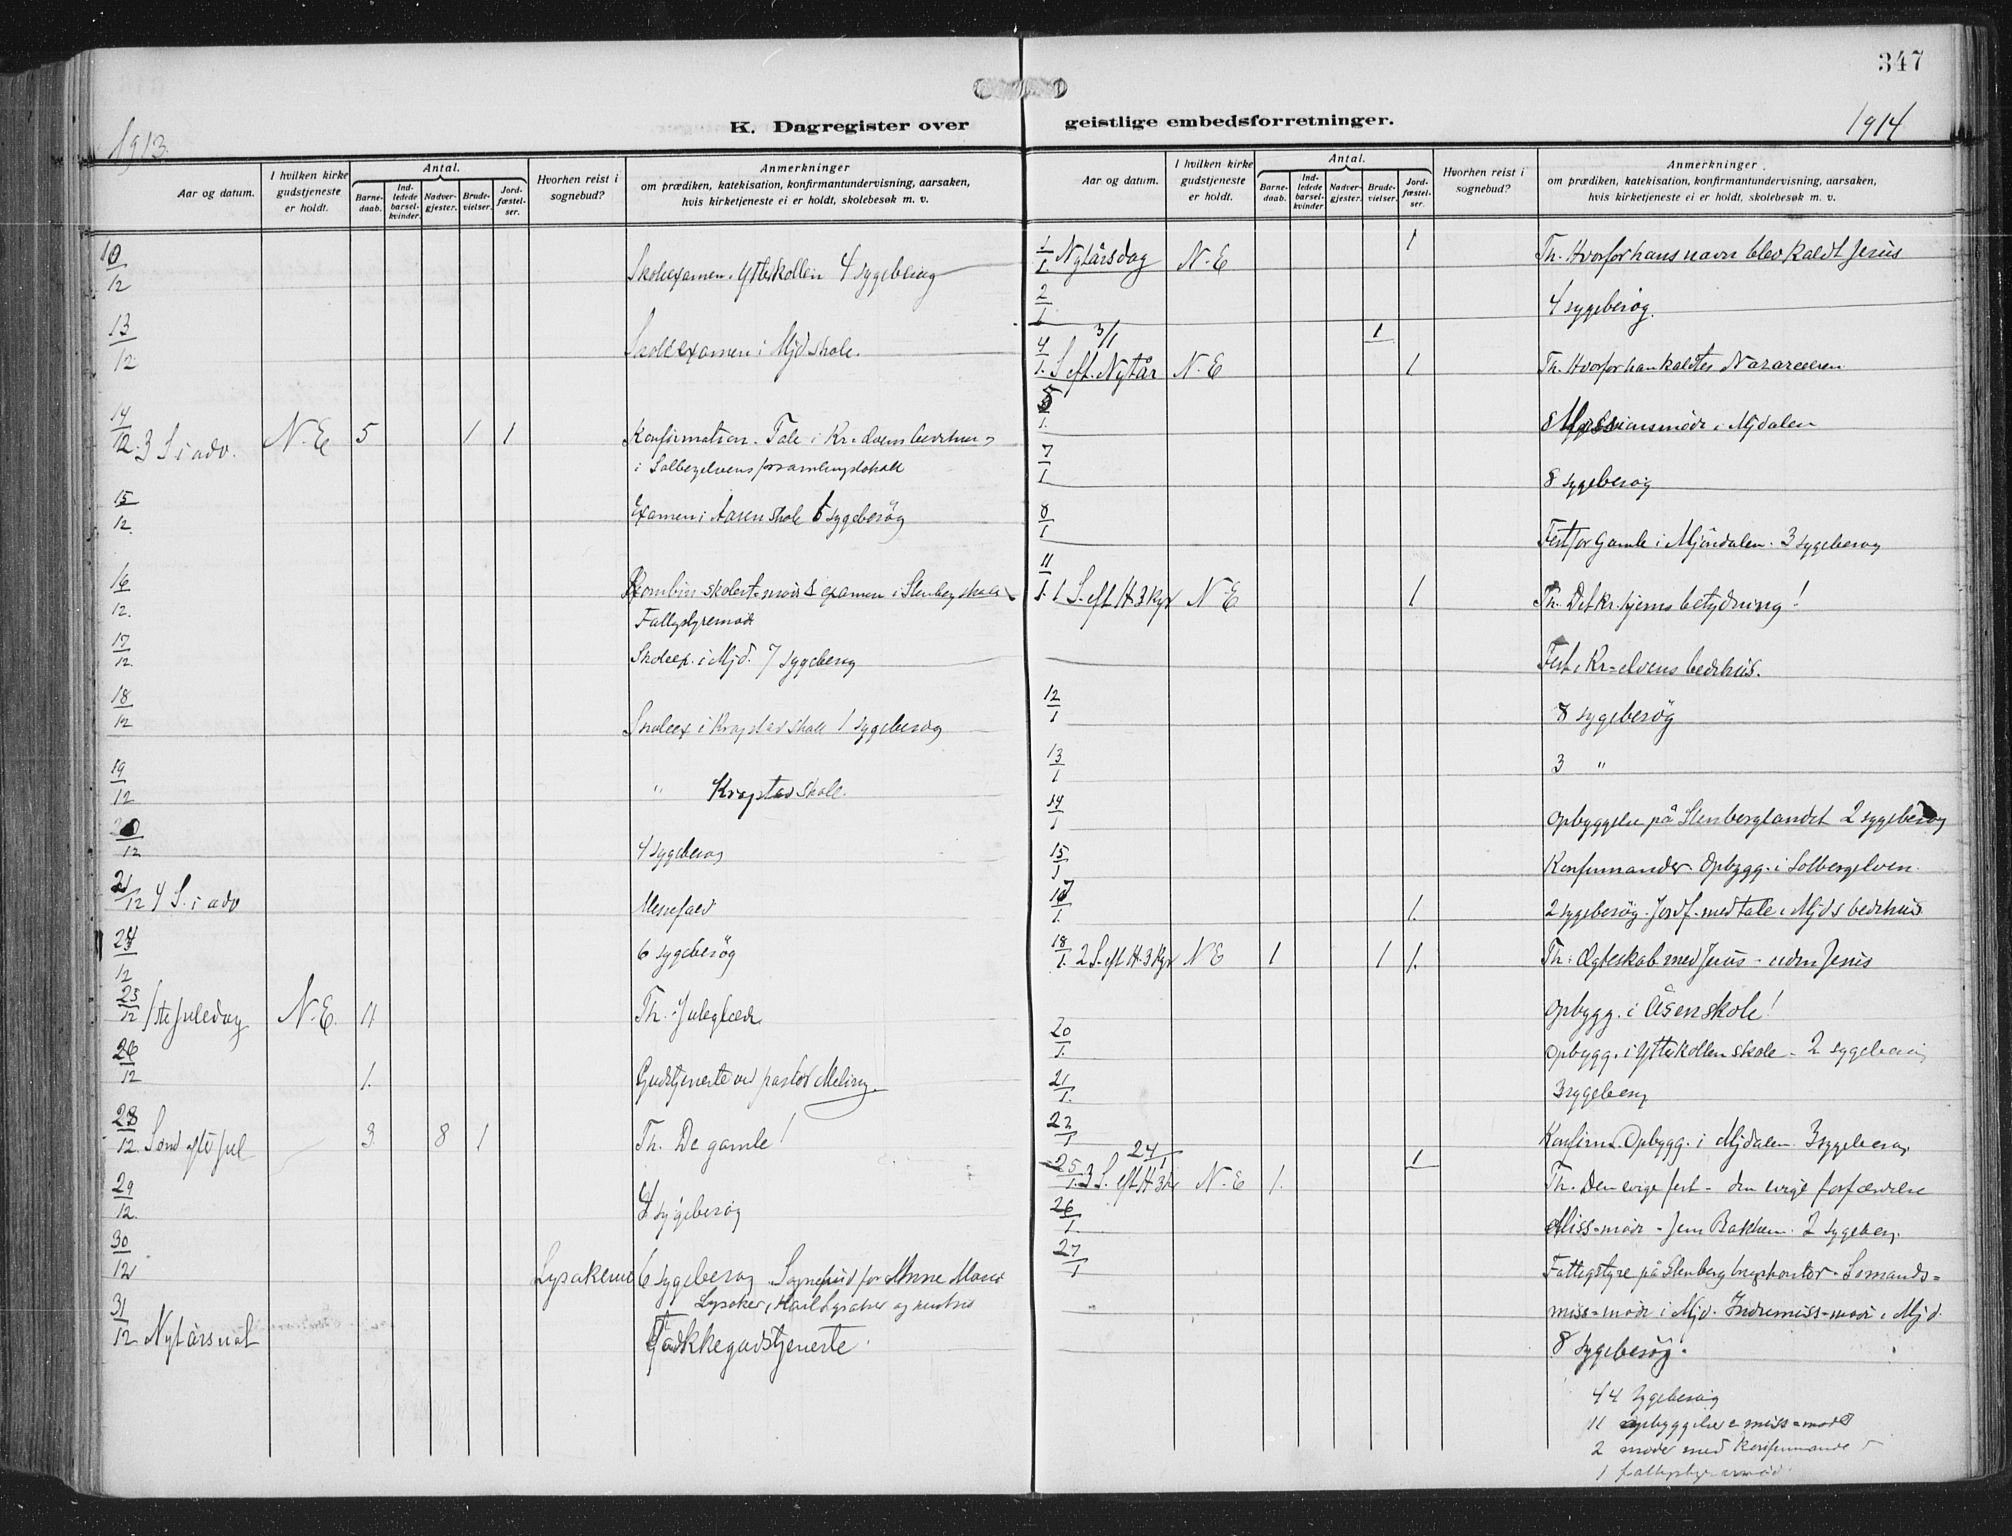 347
K. Dagregister over geistlige embedsforretninger.
1913
1914
Aar og datum. I hvilken kirke gudstjeneste er holdt. Antal. Barnedaab. Indledede barselkvinder Nadvergjester. Brudevielser. Jordfæstelser. Hvorhen reist i sognebud? Anmerkninger om prædiken, katekisation, konfirmantundervisning, aarsaken, hvis kirketjeneste ei er holdt, skolebesøk m. v.
10/12 Skoleexamen i Ytterkollen 4 sygebesøg
13/12 Skoleexamen i Mjd skole.
14/12 3 S i adv. N. E 5 1 1 Konfirmation. Tale i Kr=elvens bedehus
i Solbergelvens forsamlingslokale
15/12 Examen i Aasen skole 6 sygebesøg
16/12 examen i Stenberg skole
Fattigstyremøde
17/12 Skoleex. i Mjd. 7 sygebesøg
18/12 Skoleex i Krogstad skole 1 sygebesøg
19/12 " Krogstad skole.
20/12 4 sygebesøg
21/12 4 S. i adv Messefald
24/12 6 sygebesøg
25/12 1ste juledag N. E. 11 Th. Juleglæde
26/12 1. Gudstjeneste ved pastor Meling.
28/12 Sønd efter jul 3 8 1 Th. De gamle!
29/12. 4 sygebesøg
30/12 Lysakerne 6 sygebesøg Sognebud for Anne Marie
Lysaker, Karl Lysaker og hustru
31/12 Nytårsnat Takkegudstjeneste.
Aar og datum. I hvilken kirke gudstjeneste er holdt. Antal. Barnedaab. Indledede barselkvinder Nadvergjester. Brudevielser. Jordfæstelser. Hvorhen reist i sognebud? Anmerkninger om prædiken, katekisation, konfirmantundervisning, aarsaken, hvis kirketjeneste ei er holdt, skolebesøk m. v.
1/1. Nytårsdag N. E 1 Th. Hvorfor hans navn blev kaldt Jesus
2/1 4 sygebesøg.
3/1 1
4/1. S eft. Nytår N. E 1 Th. Hvorfor han kaldtes Nazaræeren
5/1. Missionsmøde i Mjdalen
7/1 8 sygebesøg
8/1 Fest for Gamle i Mjøndalen. 3 sygebesøg
11/1. 1 S. eft H. 3 Kgr N. E 1 Th. Det kr. hjems betydning!
Fest i Kr=elvens bedehus.
12/1 8 sygebesøg
13/1 3 "
14/1 Opbyggelse på Stenberglandet 2 sygebesøg
15/1 Konfirmander Opbygg. i Solbergelven.
17/1. 1. 2 sygebesøg. Jordf. med tale i Mjds bedehus
18/1. 2 S. eft H. 3 Kgr N E 1 1 1. Th: Ægteskab med Jesus - uden Jesus
Opbygg. i Åsen skole!
20/1. Opbygg. i Ytterkollen skole - 2 sygebesøg
21/1. 3 sygebesøg
22/1 Konfirm. Opbygg. i Mjdalen. 3 sygebesøg
24/1 1
25/1. 3 S. eft H 3 Kr N. E 1. Th. Den evige fest - den evige forfærdelse
26/1. Miss=møde - Jens Bakken. 2 sygebesøg.
27/1 Fattigstyre på Stenberg brugskontor. Sømands=
miss=møde i Mjd. Indremiss=møde i Mjd.
8 sygebesøg.
44 sygebesøg
11 opbyggelse & miss=møder
2 møder med Konfirmander
1 fattigstyremøde